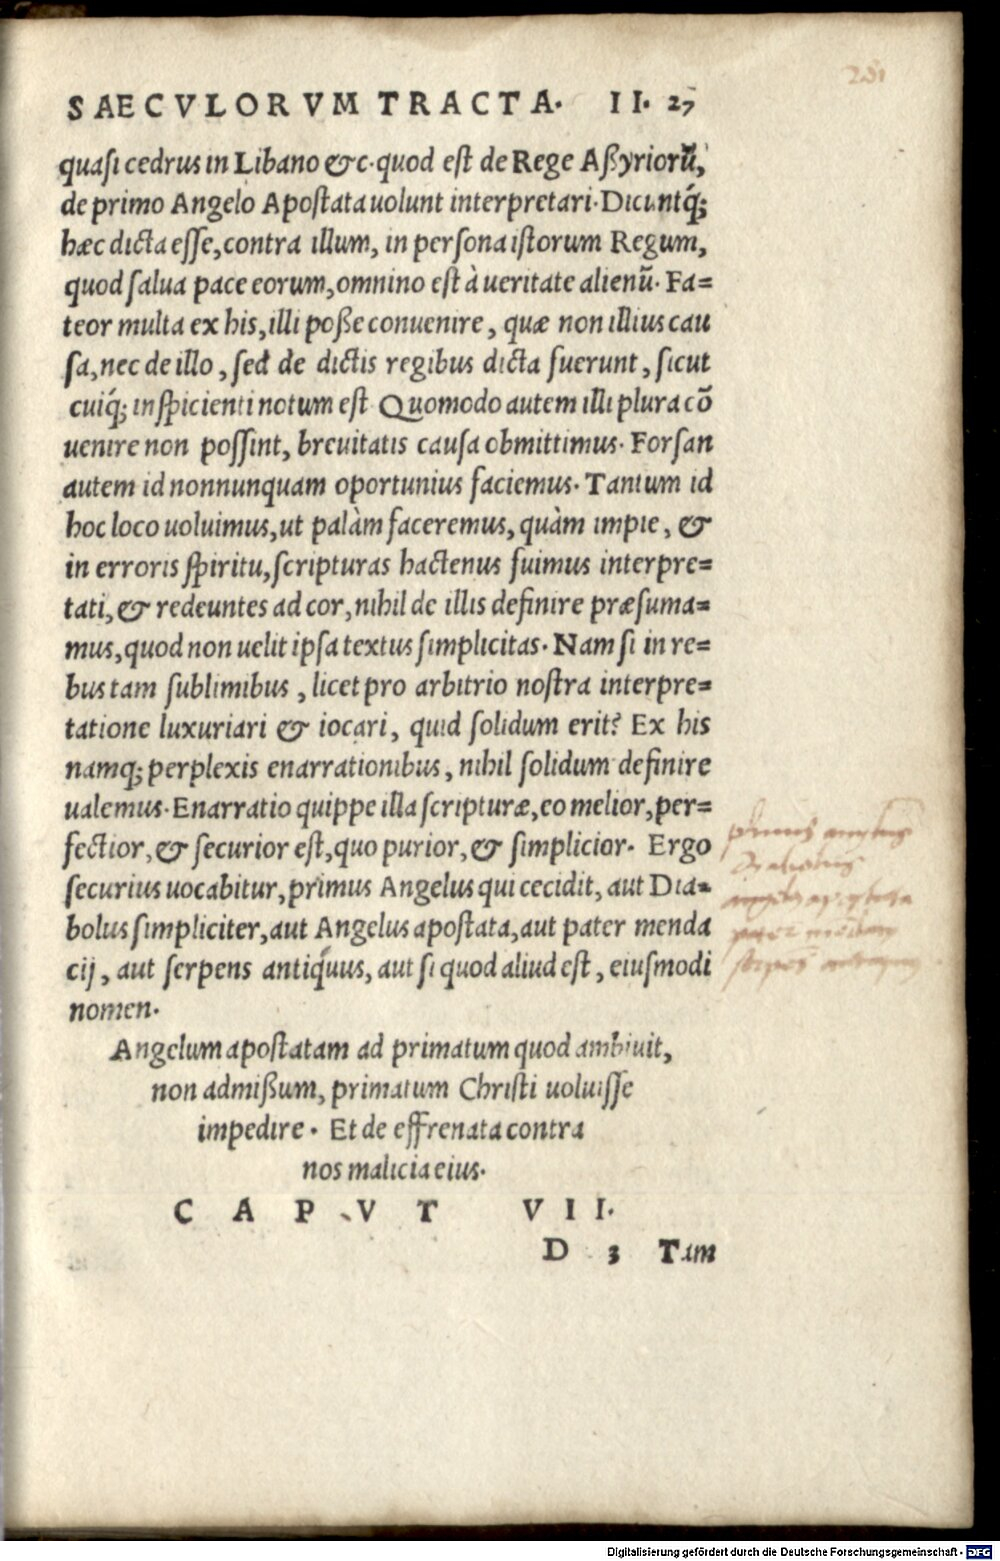 231
SAECVLORVM TRACTA. II. 27
quasi cedrus in Libano &c. quod est de Rege Aßyriorũ,
de primo Angelo Apostata uolunt interpretari. Dicuntq́;
hæc dicta esse, contra illum, in persona istorum Regum,
quod salua pace eorum, omnino est à ueritate alienũ. Fa=
teor multa ex his, illi poße conuenire, quæ non illius cau
sa, nec de illo, sed de dictis regibus dicta fuerunt, sicut
cuiq́; inspicienti notum est Quomodo autem illi plura cõ
uenire non possint, breuitatis causa obmittimus. Forsan
autem id nonnunquam oportunius faciemus. Tantum id
hoc loco uoluimus, ut palàm faceremus, quàm impie, &
in erroris spiritu, scripturas hactenus fuimus interpre=
tati, & redeuntes ad cor, nihil de illis definire præsuma=
mus, quod non uelit ipsa textus simplicitas. Nam si in re=
bus tam sublimibus, licet pro arbitrio nostra interpre=
tatione luxuriari & iocari, quid solidum erit? Ex his
namq; perplexis enarrationibus, nihil solidum definire
ualemus. Enarratio quippe illa scripturæ, eo melior, per=
fectior, & securior est, quo purior, & simplicior. Ergo
securius uocabitur, primus Angelus qui cecidit, aut Dia=
bolus simpliciter, aut Angelus apostata, aut pater menda
cij, aut serpens antiq́uus, aut si quod aliud est, eiusmodi
nomen.
primus angelus
Diabolus
angelus apostata
pater mendacij
serpens antiquus
Angelum apostatam ad primatum quod ambiuit,
non admißum, primatum Christi uoluisse
impedire. Et de effrenata contra
nos malicia eius.
CAPVT VII.
D 3 Tam
Digitalisierung gefördert durch die Deutsche Forschungsgemeinschaft - DFG